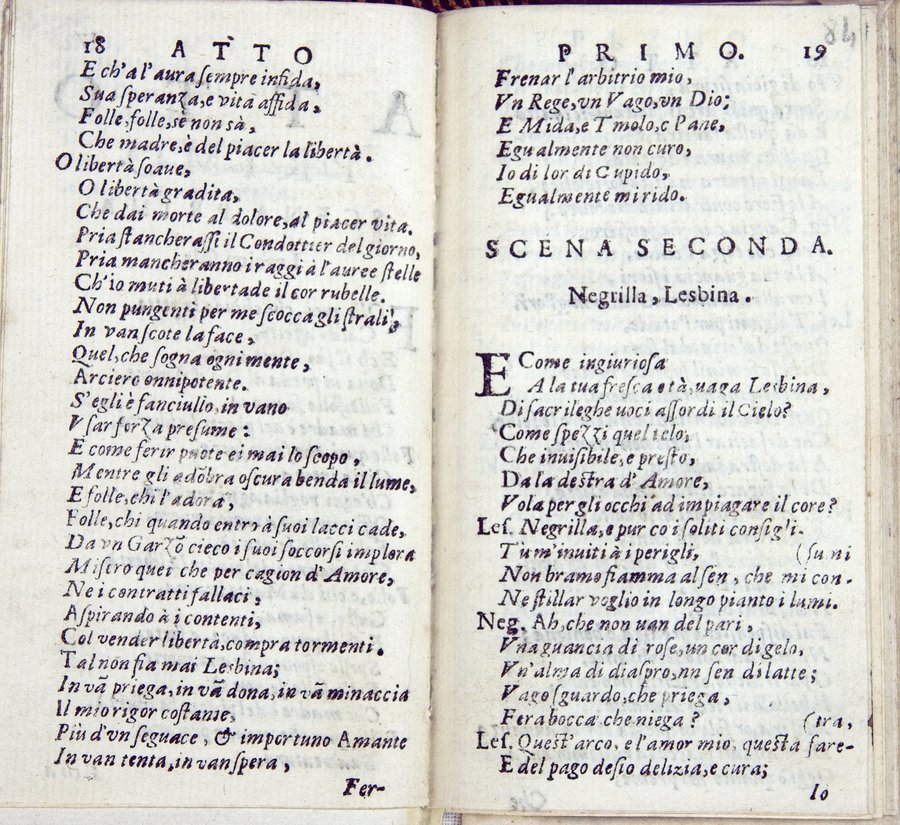 18 ATTO
E ch'a l'aura sempre infida,
Sua speranza, e vita affida,
Folle, folle, se non sà,
Che madre, è del piacer la libertà.
O libertà soaue,
O libertà gradita,
Che dai morte al dolore, al piacer vita.
Pria stancherassi il Condottier del giorno,
Pria mancheranno i raggi à l'auree stelle
Ch'io muti à libertade il cor rubelle.
Non pungenti per me scocca gli strali,
In van scote la face,
Quel, che sogna ogni mente,
Arciero onnipotente.
S'egli è fanciullo, in vano
Vsar forza presume:
E come ferir puote ei mai lo scopo,
Mentre gli adõbra oscura benda il lume,
E folle, chi l'adora,
Folle, chi quando entro à suoi lacci cade,
Da vn Garzõ cieco i suoi soccorsi implora
Misero quei che per cagion d'Amore,
Ne i contratti fallaci,
Aspirando à i contenti,
Col vender libertà, compra tormenti.
Tal non fia mai Lesbina;
In vã priega, in vã dona, in vã minaccia
Il mio rigor costante,
Più d'vn seguace, & importuno Amante
In van tenta, in van spera,
Fer-
PRIMO. 19
84
Frenar l'arbitrio mio,
Vn Rege, vn Vago, vn Dio;
E Mida, e Tmolo, e Pane,
Egualmente non curo,
Io di lor di Cupido,
Egualmente mi rido.
SCENA SECONDA.
Negrilla, Lesbina.
E Come ingiuriosa
A la tua fresca età, vaga Lesbina,
Di sacrileghe uoci assordi il Cielo?
Come spezzi quel telo,
Che inuisibile, e presto,
Da la destra d'Amore,
Vola per gli occhi ad impiagare il core?
Les. Negrilla, e pur co i soliti consigli.
Tu m'inuiti à i perigli, (sumi
Non bramo fiamma al sen, che mi con-
Ne stillar voglio in longo pianto i lumi.
Neg. Ah, che non uan del pari,
Vna guancia di rose, un cor di gelo,
Vn'alma di diaspro, un sen di latte;
Vago sguardo, che priega,
Fera bocca che niega? (tra,
Les. Quest'arco, e l'amor mio, questa fare-
E del pago desio delizia, e cura;
Io